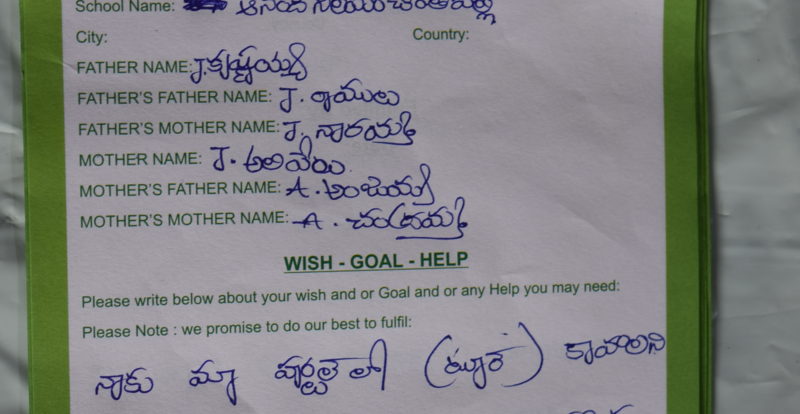 School Name:
City: Country:
FATHER NAME: J. కృష్ణయ్య
FATHER'S FATHER NAME: J. రాములు
FATHER'S MOTHER NAME: J. నారాయమ్మ
MOTHER NAME: J. అలివేలు
MOTHER'S FATHER NAME: A. అంజయ్య
MOTHER'S MOTHER NAME: A. చంద్రమ్మ
WISH - GOAL - HELP
Please write below about your wish and or Goal and or any Help you may need:
Please Note : we promise to do our best to fulfil:
నాకు మా కావాలని